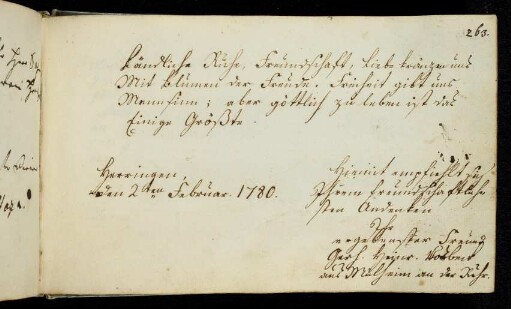 263.
Ländliche Ruhe, Freundschaft, Liebe kränzen uns
Mit Blumen der Freude. Freiheit gibt uns
Mannsinn; aber göttlich zu leben ist das
Einige Größte.
Herringen,
den 2ten Februar. 1780.
Hiemit empfiehlt sich
Ihrem freundschaftlich-
sten Andenken
Ihr
ergebenster Freund
Gerh. Heinr.
aus Mülheim an der Ruhr.